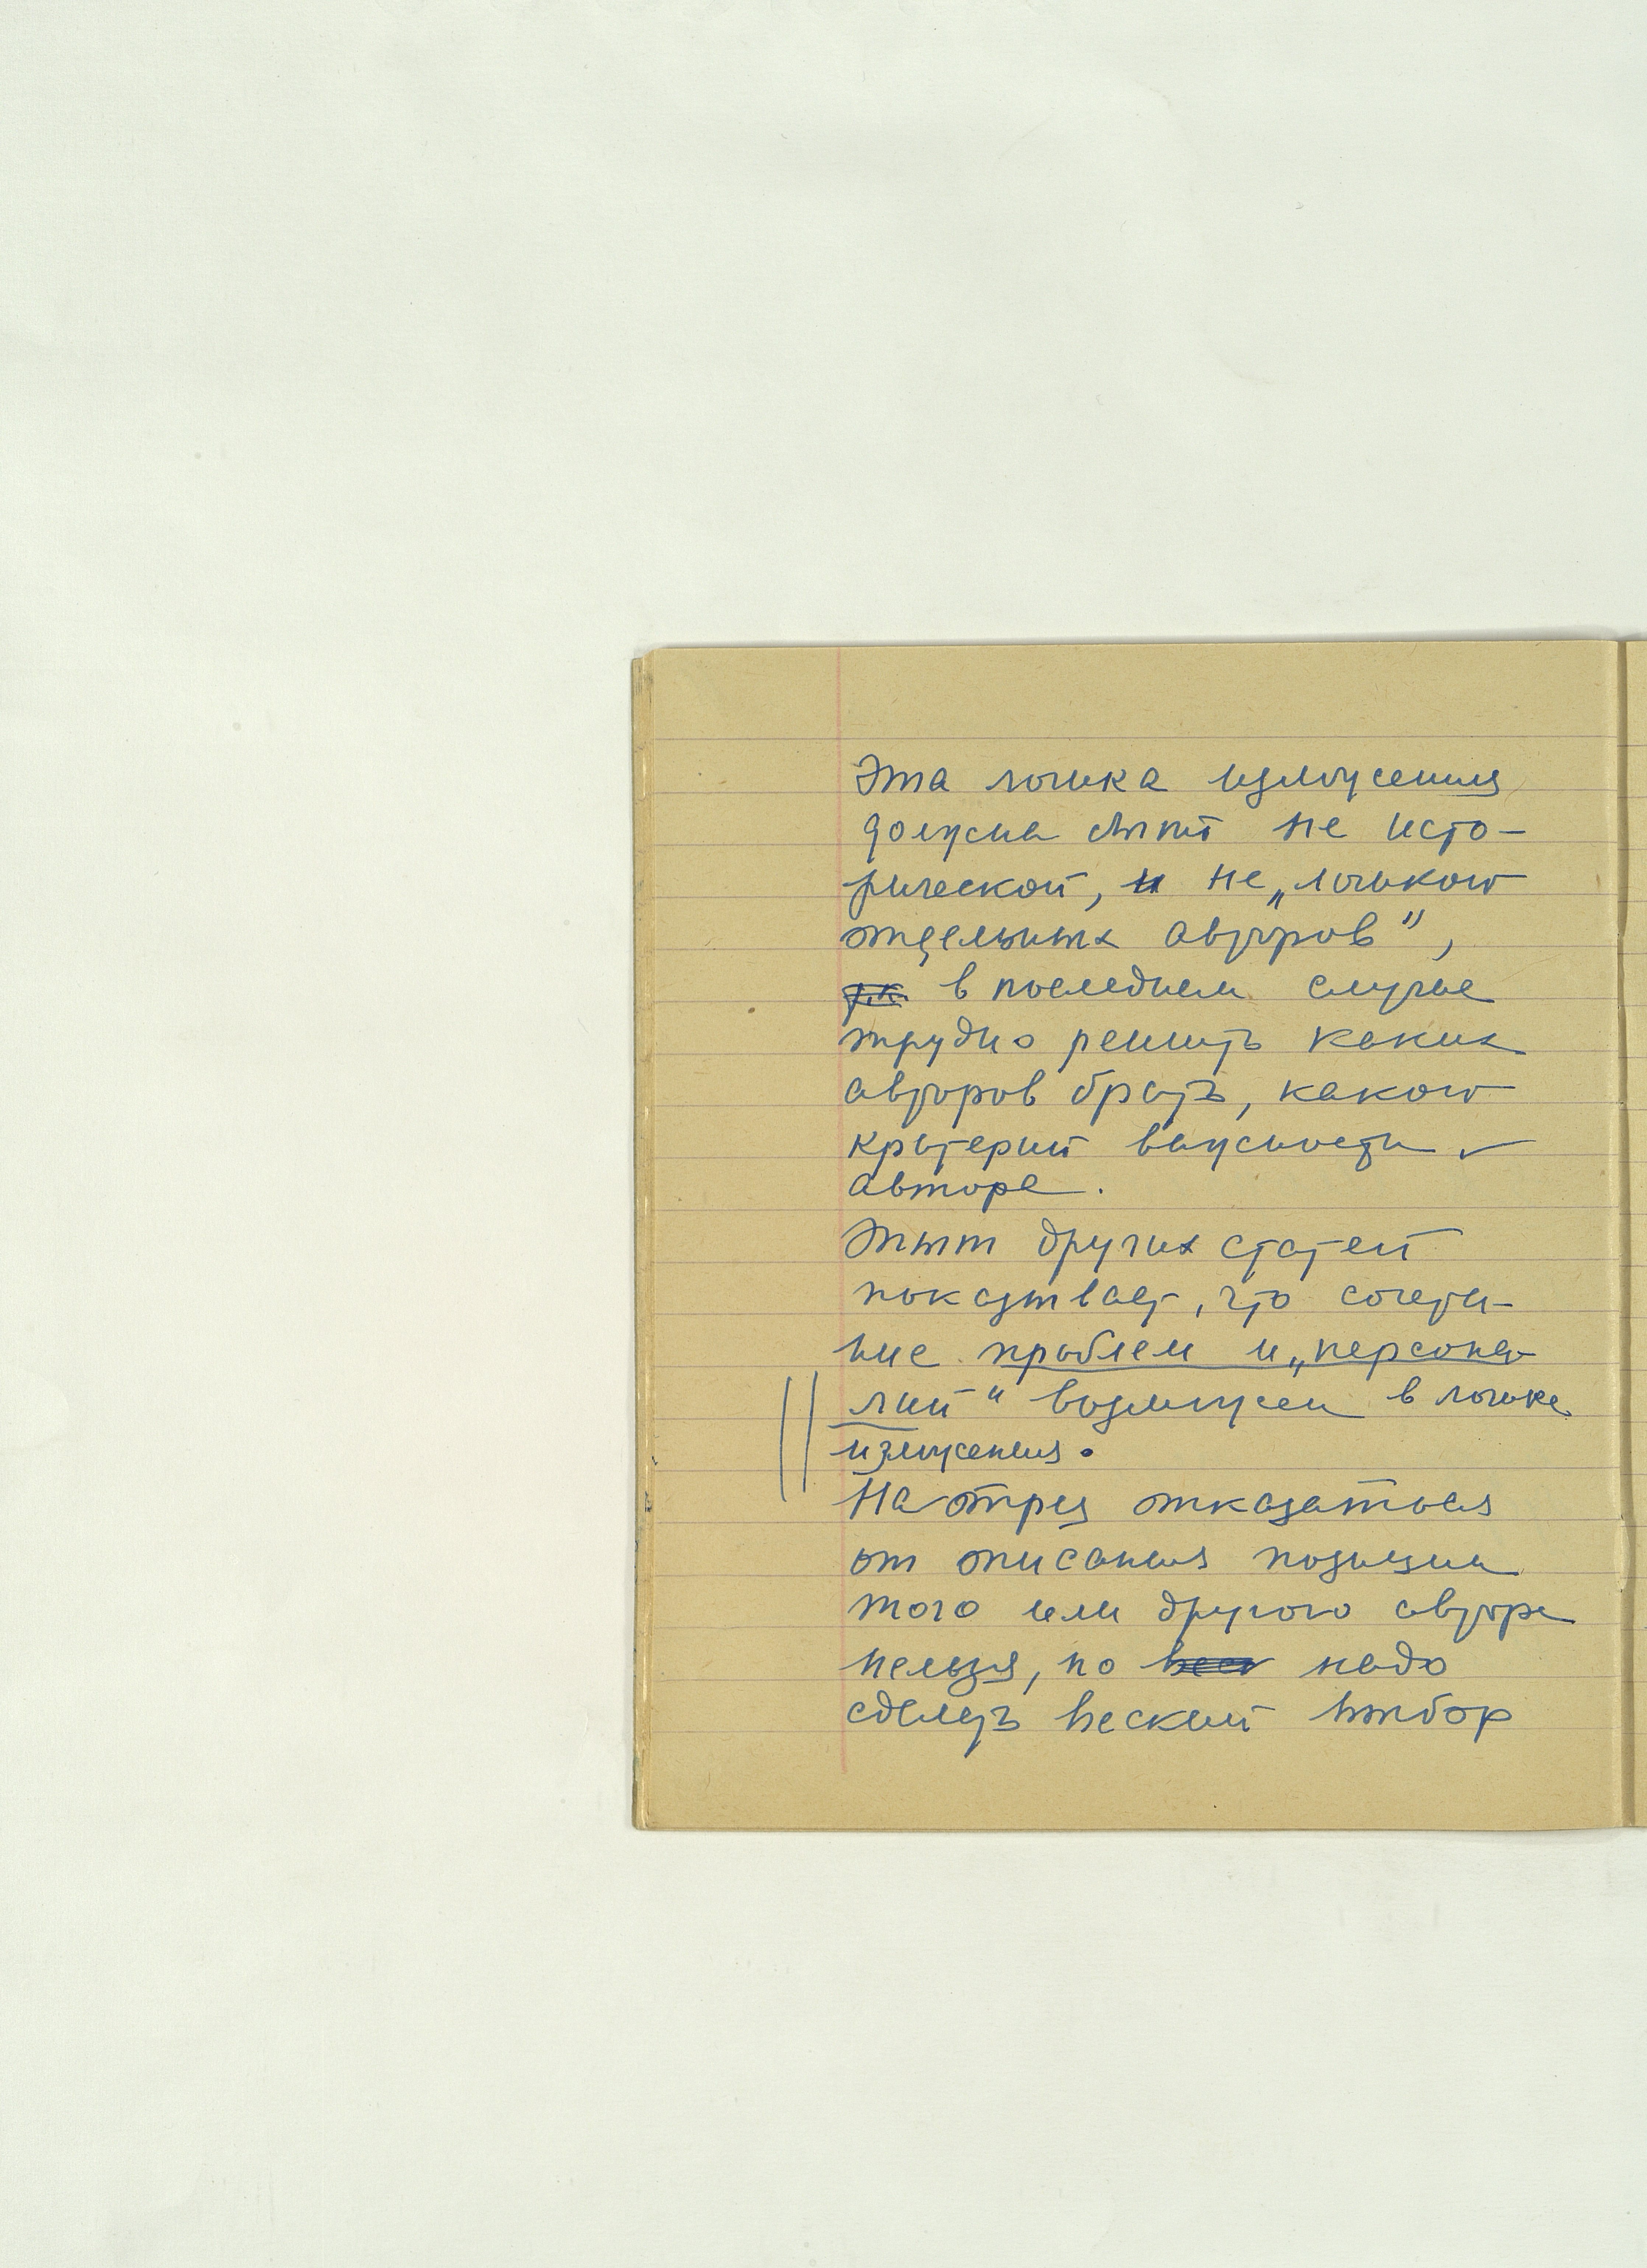 Эта логика изложения
должна быть не исто-
рической, и не „логикой
отдельных авторов",
т.к. в последнем случае
трудно решить каких
авторов брать, каков
критерий важности
автора.
Опыт других статей
показывает, что сочета-
ние проблем и „персона-
лий" возможен в логике
изложения.
Наотрез отказаться
от описания позиции
того или другого автора
нельзя, но надо
сделать веский выбор